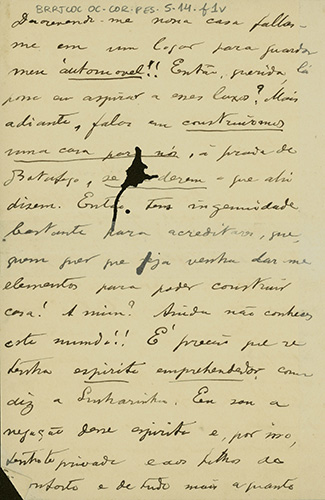 BRRJCOC OC·COR·PES·5·14·f1v
Descrevendo-me nossa casa fallas-
me em um logar para guardar
meu automovel!! Então, querida, lá
posso eu aspirar a esses luxos? Mais
adiante, falas em construirmos
uma casa para nós, à praia de
Botafogo, se derem o que ahi
dizem. Então tens ingenuidade
bastante para acreditares, que,
quem quer que seja venha dar-me
elementos para poder construir
casa! A mim? Ainda não conheces
este mundo!! É preciso que se
tenha espirito emprehendedor, como
diz a Sinharinha. Eu sou a
negação desse espirito e, por isso,
privado e aos filhos de
conforto e de tudo mais a quanto